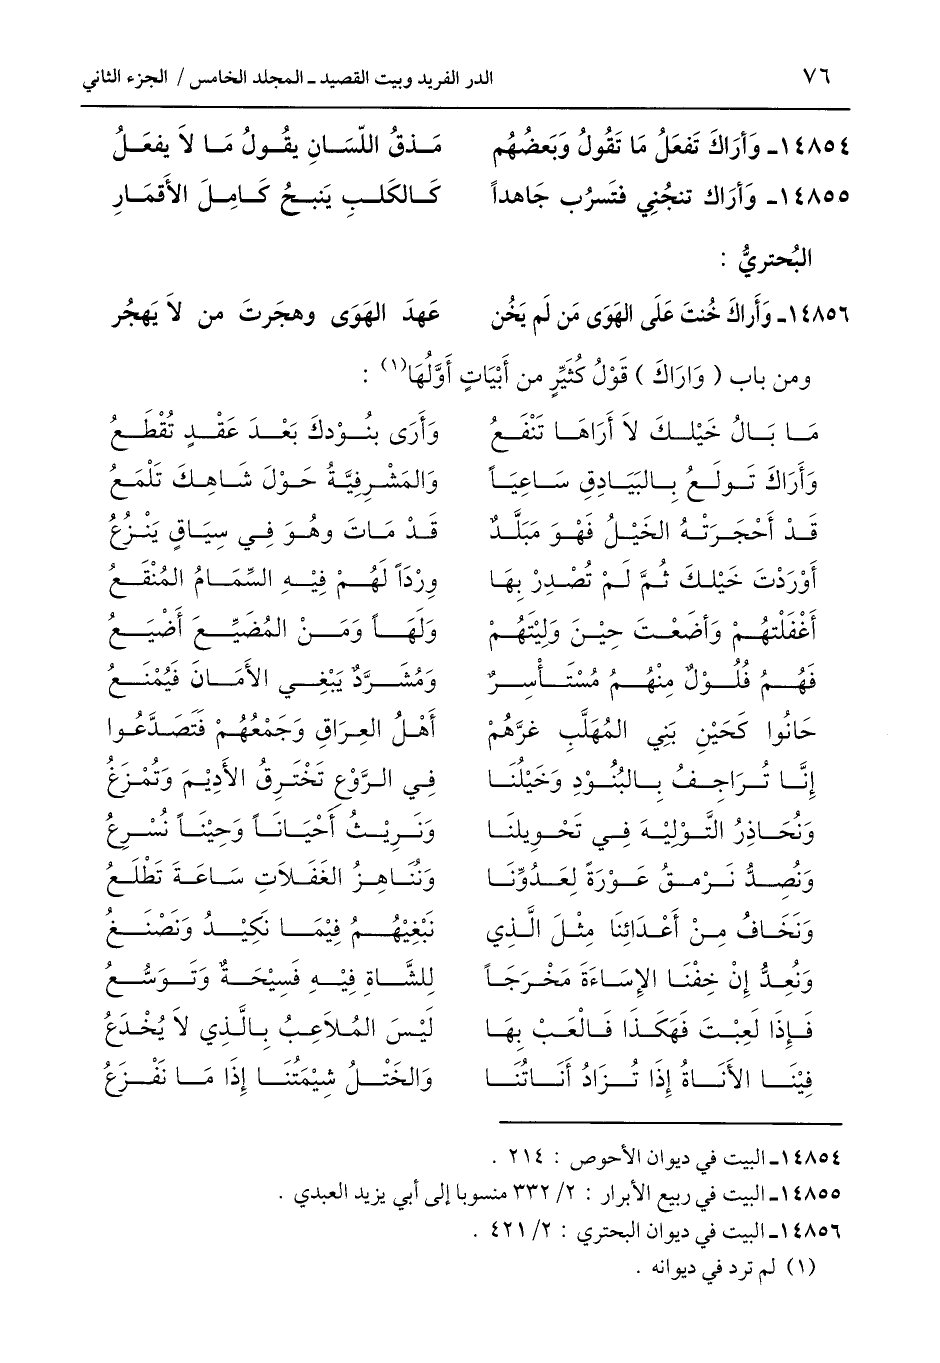 ٧٦ الدر الفريد وبيت القصيد ـ المجلد الخامس / الجزء الثاني
١٤٨٥٤ـ وَأَرَاكَ تَفعَلُ مَا تَقُولُ وَبَعضُهُم مَــذقُ اللّسَــانِ يقُــولُ مَــا لاَ يفعَــلُ
١٤٨٥٥ـ وَأَرَاك تنجُني فتَسرُب جَاهداً كَـالكَلــبِ يَنبــحُ كَـامِـلَ الأَقمَـارِ
البُحتريُّ :
١٤٨٥٦ـ وَأَراكَ خُنتَ عَلَى الهَوَى مَن لَم يَخُن عَهدَ الهَوَى وهجَرتَ من لاَ يَهجُر
ومن باب ( وَارَاكَ ) قَوْلُ كُثَيِّرٍ من أَبْيَاتٍ أَوَّلُهَا(١) :
مَـا بَـالُ خَيْلِـكَ لاَ أَرَاهَـا تَنْفَـعُ وَأَرَى بنُـوْدكَ بَعْـدَ عَقْـدٍ تُقْطَـعُ
وَأَرَاكَ تَـولَـعُ بِـالبَيَـادِقِ سَـاعِيَـاً وَالمَشْـرفِيَّـةُ حَـوْلَ شَـاهِـكَ تَلْمَـعُ
قَـدْ أَحْجَـرَتْـهُ الخَيْـلُ فَهْـوَ مَبَلَّـدٌ قَـدْ مَـاتَ وهُـوَ فِـي سِيَـاقٍ يَنْـزُعُ
أَوْرَدْتَ خَيْلـكَ ثُـمَّ لَـمْ تُصْـدِرْ بِهَـا وِرْدَاً لَهُـمْ فِيْـهِ السِّمَـامُ المُنْقَـعُ
أَغْفَلْتَهُـمْ وَأَضَعْـتَ حِيْـنَ وَلِيْتَهُـمْ وَلَهَـاً وَمَـنْ المُضَيِّـعِ أَضْيَـعُ
فَهُـمُ فُلُـوْلٌ مِنْهُـمُ مُسْتَـأْسِـرٌ وَمُشَـرَّدٌ يَبْغِـي الأَمَـانَ فَيُمْنَـعُ
خَانُوا كَحَيْنِ بَنِي المُهَلَّبِ غَرَّهُمْ أَهْـلُ العِـرَاقِ وَجَمْعُهُـمْ فَتَصَـدَّعُـوا
إنَّـا تُـرَاجِـفُ بِـالبُنُـوْدِ وَخَيْلُنَـا فِـي الـرَّوْعِ تَخْتَـرِقُ الأَدِيْـمَ وَتَمْـزَعُ
وَنُحَـاذِرُ التَّـوْلِيَـةَ فِـي تَحْـوِيلنَـا وَنَـرِيْـثُ أَحْيَـانَـاً وَحِيْنَـاً نُسْـرِعُ
وَنُصِـدُّ نَـرْمـقُ عَـوْرَةً لِعَـدُوِّنَـا وَنُنَـاهِـزُ الغَفَـلاَتِ سَـاعَـةَ تَطْلَـعُ
وَنَخَـافُ مِـنْ أَعْـدَائِنَا مِثْـلَ الَّـذِي نَبْغِيْهُـمِ فِيْمَـا نَكِيْـدُ وَنَصْنَـعُ
وَنُعِـدُّ إِنْ خِفْنَـا الإسَـاءَةَ مَخْـرَجَـاً لِلشَّـاةِ فِيْـهِ فَسِيْحَـةٌ وَتَـوَسُّـعُ
فَـإِذَا لَعِبْـتَ فَهَكَـذَا فَـالْعَبْ بِهَـا لَيْـسَ المُـلاَعِـبُ بِـالَّـذِي لاَ يُخْـدَعُ
فِيْنَـا الأَنَـاةُ إِذَا تُـزَادُ أَنَـاتُنَـا وَالخَتْـلُ شِيْمَتُنَـا إِذَا مَـا نَفْـزَعُ
١٤٨٥٤ـ البيت في ديوان الأحوص : ٢١٤ .
١٤٨٥٥ـ البيت في ربيع الأبرار : ٢/ ٣٣٢ منسوبا إلى أبي يزيد العبدي .
١٤٨٥٦ـ البيت في ديوان البحتري : ٢/ ٤٢١ .
(١) لم ترد في ديوانه .